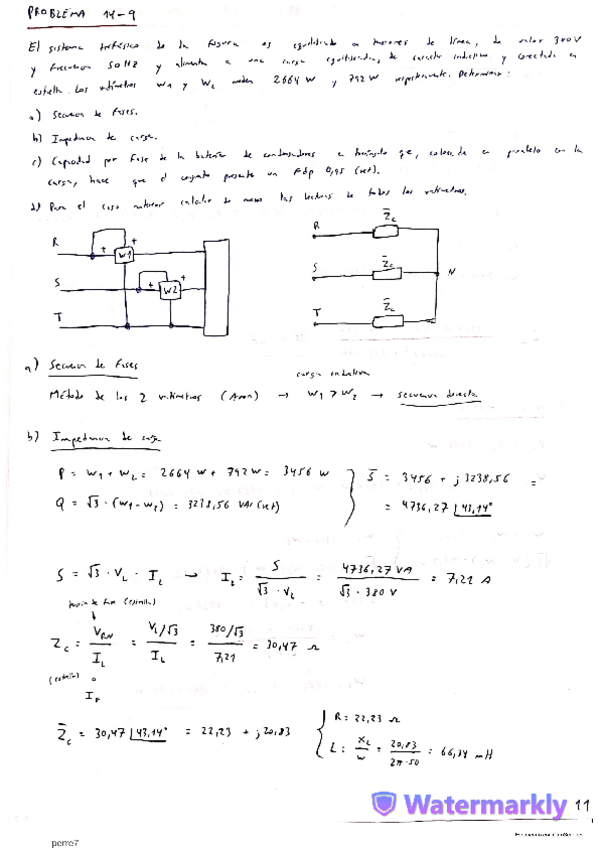 PROBLEMA 14-9
El sistema trifásico de la figura es equilibrado en tensiones de línea, de valor 380V
y frecuencia 50 Hz y alimenta a una carga equilibrada, de carácter inductivo y conectada en
estrella. Los vatímetros W1 y W2 miden 2664 W y 792 W respectivamente. Determinar:
a) Secuencia de fases.
b) Impedancia de carga.
c) Capacidad por fase de la batería de condensadores en triángulo que, colocada en paralelo con la
carga, hace que el conjunto presente un Fdp 0,95 (ret).
d) Para el caso anterior calcular de nuevo las lecturas de todos los vatímetros.
R + W1 +
S + W2 +
T
R Z̄c
S Z̄c N
T Z̄c
a) Secuencia de fases
carga inductiva
Método de los 2 vatímetros (Aron) → W1 > W2 → secuencia directa
b) Impedancia de carga
P = W1 + W2 = 2664 W + 792 W = 3456 W
Q = √3 · (W1 - W2) = 3238,56 VAr (ret)
S̄ = 3456 + j 3238,56 =
= 4736,27 ∠43,14°
S = √3 · VL · IL → IL = S / (√3 · VL) = 4736,27 VA / (√3 · 380 V) = 7,21 A
tensión de fase (estrella)
Zc = VRN / IL = (VL/√3) / IL = (380/√3) / 7,21 = 30,47 Ω
(estrella)
IF
Z̄c = 30,47 ∠43,14° = 22,23 + j 20,83
R: 22,23 Ω
L: XL / w = 20,83 / (2π·50) = 66,34 mH
Watermarkly
11
perre7